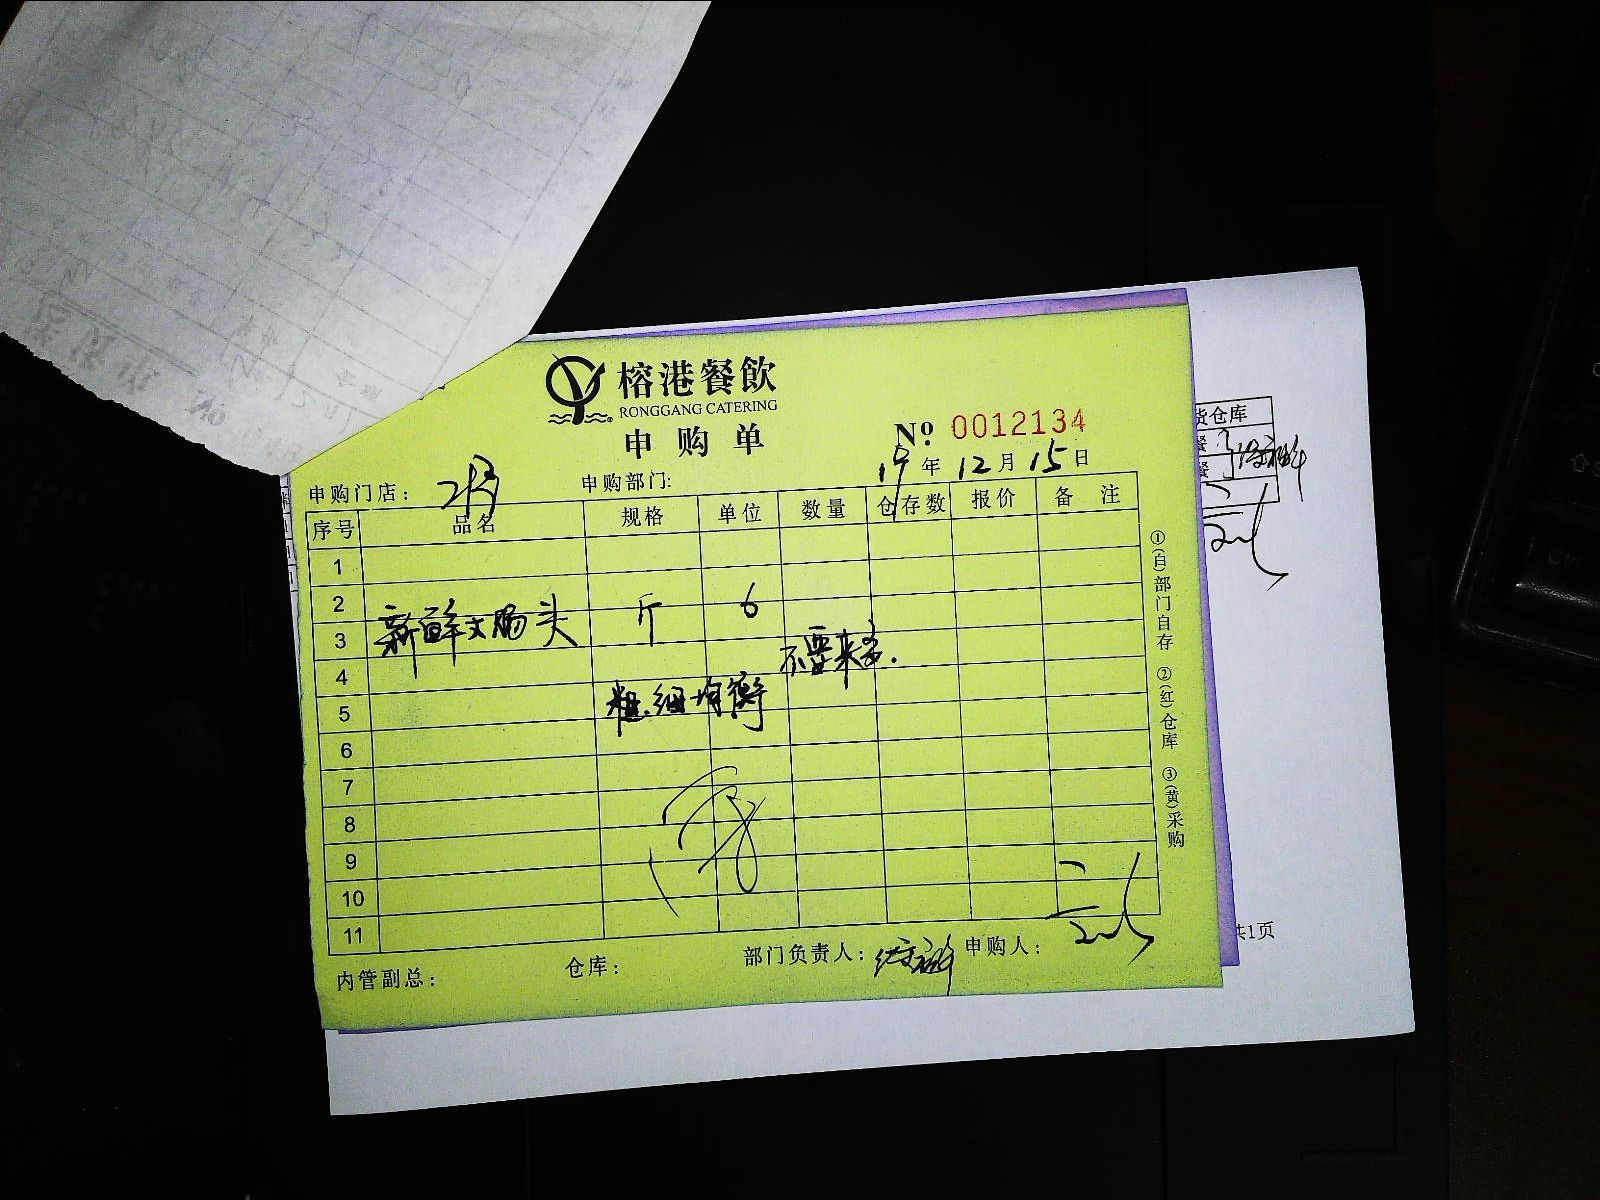 榕港餐飲
RONGGANG CATERING
申购单
No. 0012134
19年12月15日
申购门店：
申购部门:
序号 品名 规格 单位 数量 仓存数 报价 备 注
1
2
3 新鲜大肠头 斤 6
不要来多.
4
粗细均衡
5
6
7
8
9
10
11
内管副总： 仓库： 部门负责人： 申购人：
①(白)部门自存 ②(红)仓库 ③(黄)采购
货仓库
餐
餐
共1页